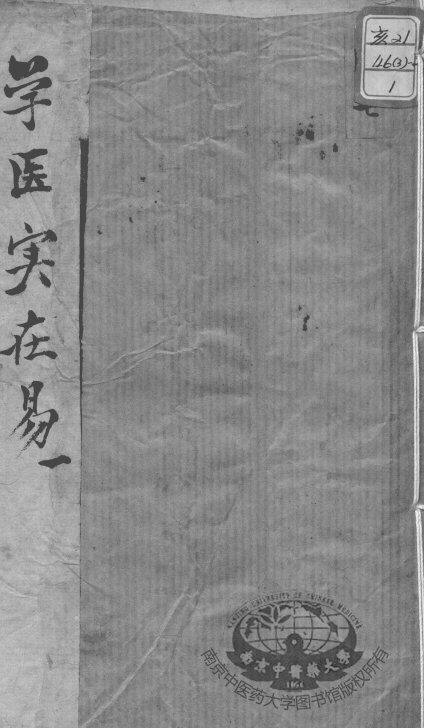 学医实在易
一
亥21
1
NANJING UNIVERSITY OF CHINESE MEDICINE
南京中醫藥大學
1954
南京中医药大学图书馆版权所有